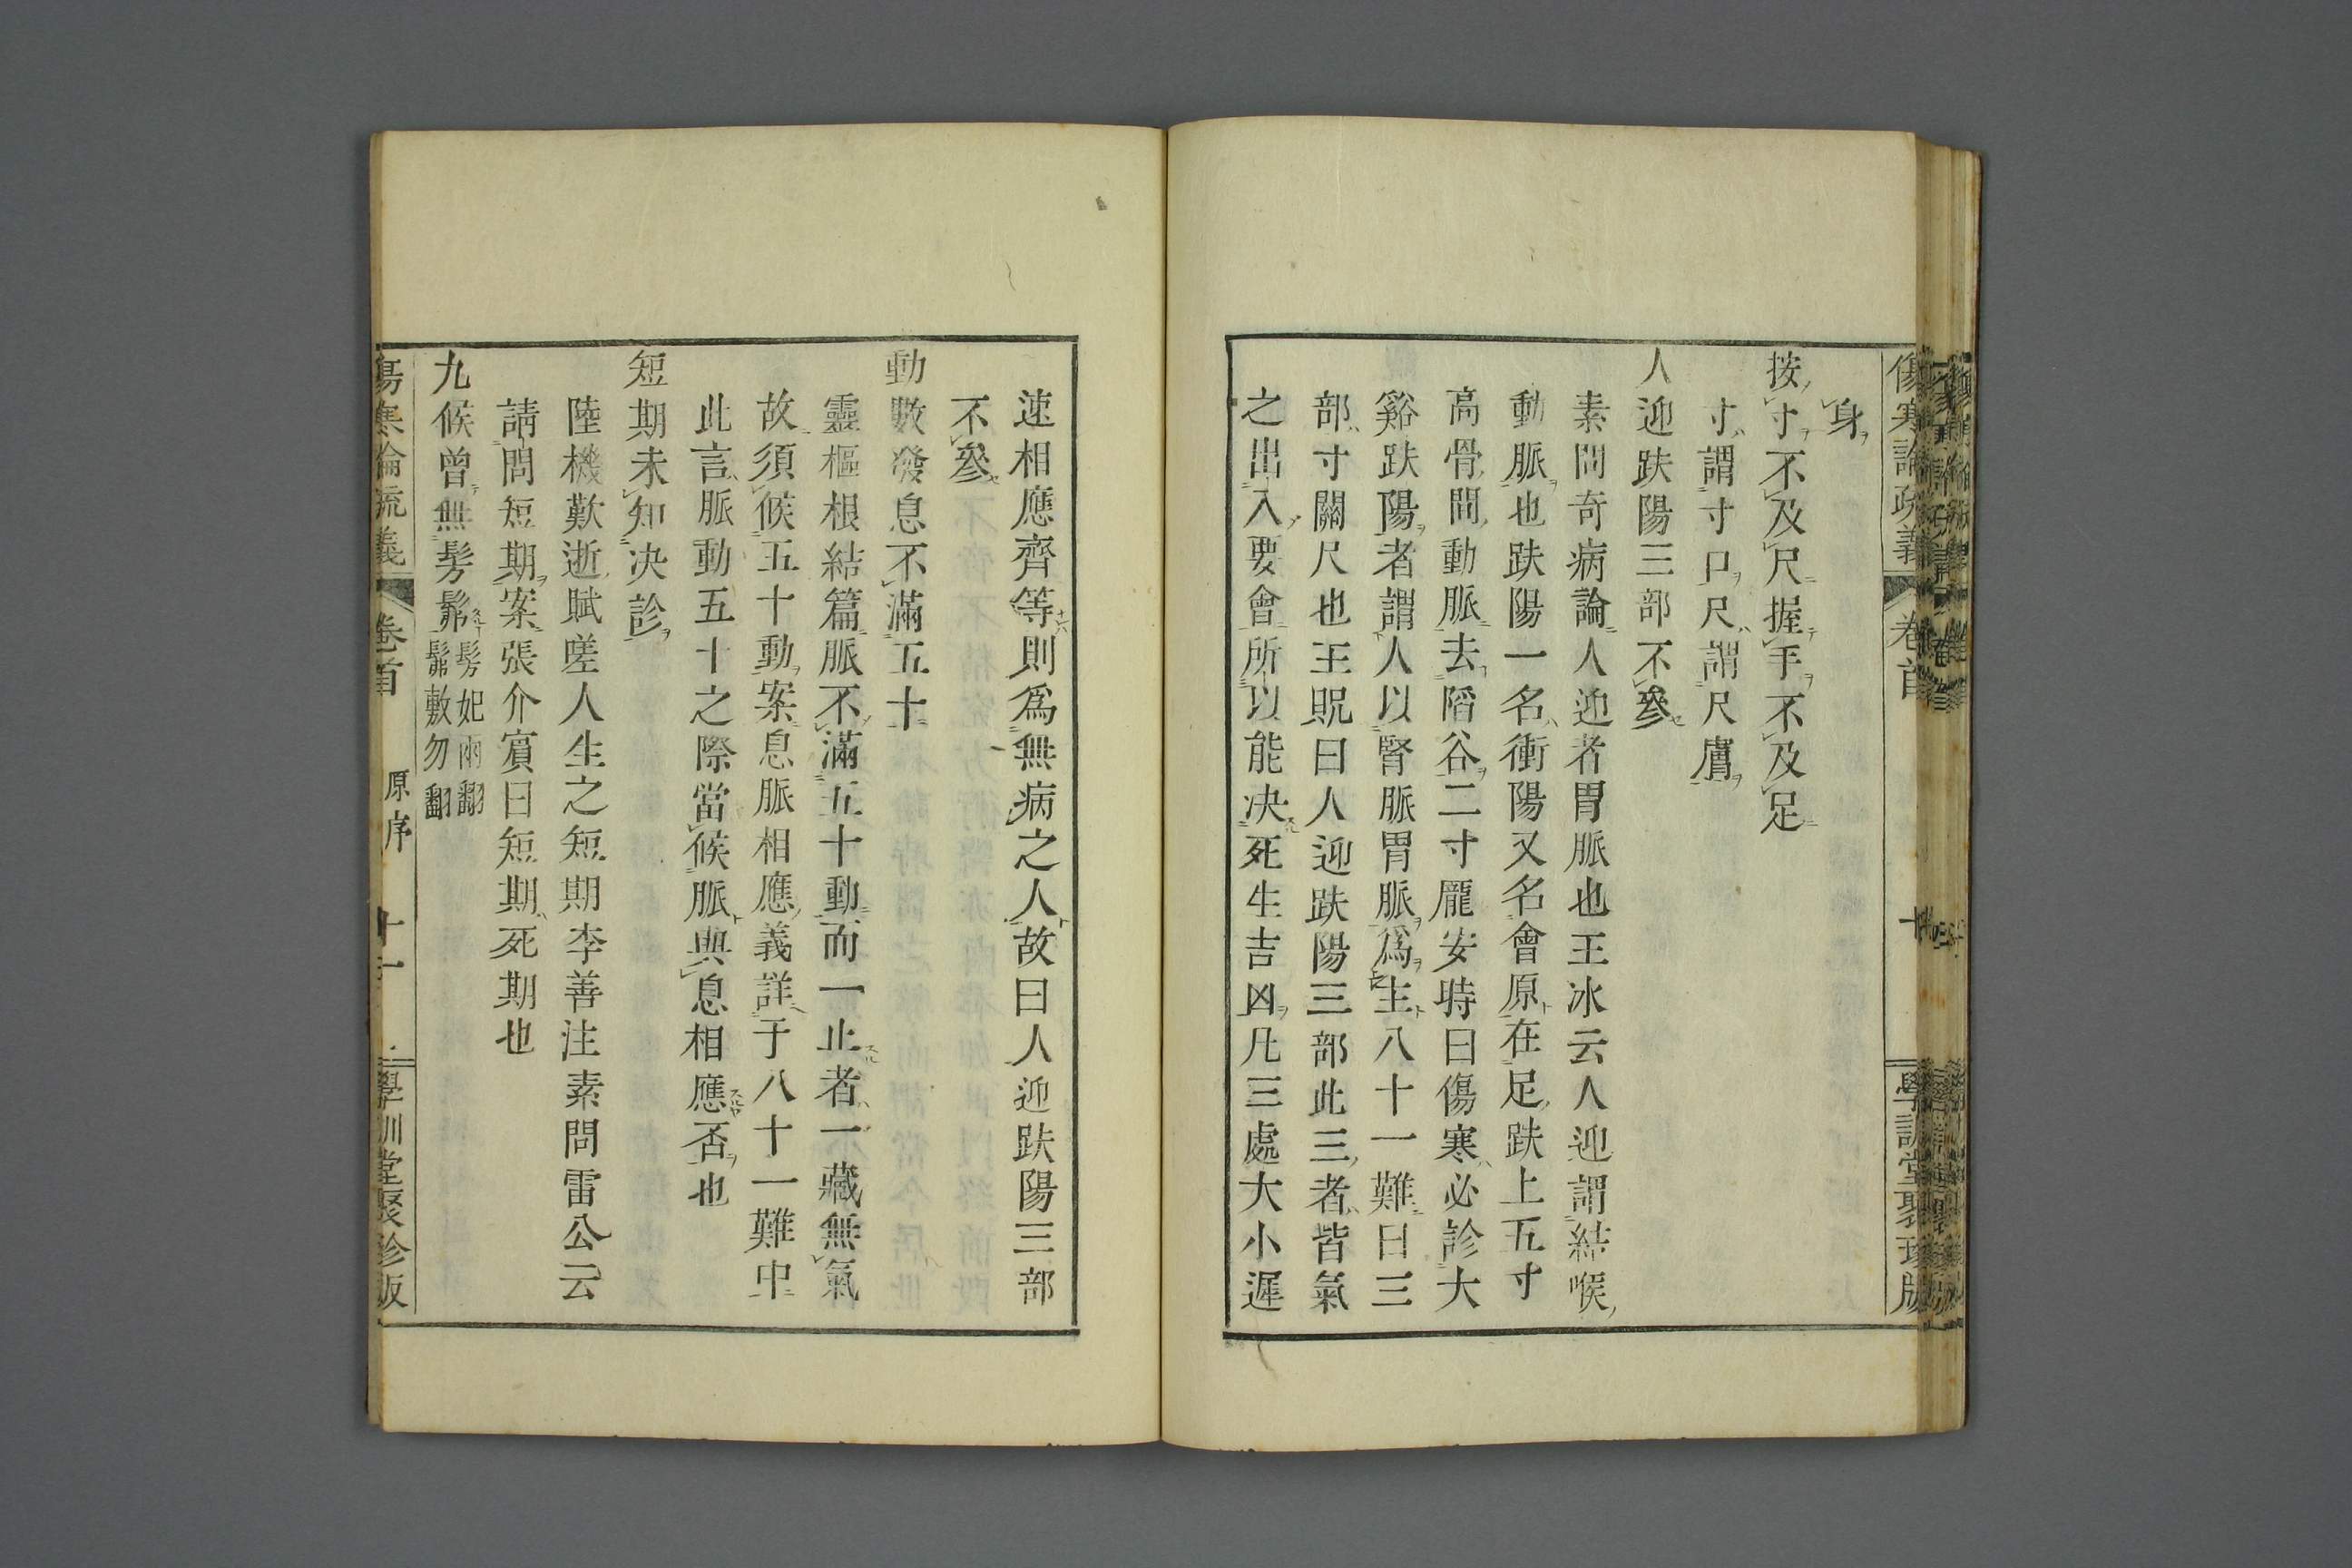 傷寒論疏義 卷首 十 學訓堂聚珍版
身
按寸不及尺握手不及足
寸謂寸口尺謂尺膚
人迎趺陽三部不參
素問奇病論人迎者胃脈也王冰云人迎謂結喉
動脈也趺陽一名衝陽又名會原在足趺上五寸
高骨間動脈去陷谷二寸龐安時曰傷寒必診大
谿趺陽者謂人以腎脈胃脈爲主八十一難曰三
部寸關尺也王貺曰人迎趺陽三部此三者皆氣
之出入要會所以能决死生吉凶凡三處大小遲
速相應齊等則爲無病之人故曰人迎趺陽三部
不參
動數發息不滿五十
靈樞根結篇脈不滿五十動而一止者一藏無氣
故須候五十動案息脈相應義詳于八十一難中
此言脈動五十之際當候脈與息相應否也
短期未知决診
陸機歎逝賦嗟人生之短期李善注素問雷公云
請問短期案張介賓曰短期死期也
九候曾無髣髴髣妃兩翻
髴敷勿翻
傷寒論疏義 卷首 原序 十一 學訓堂聚珍版